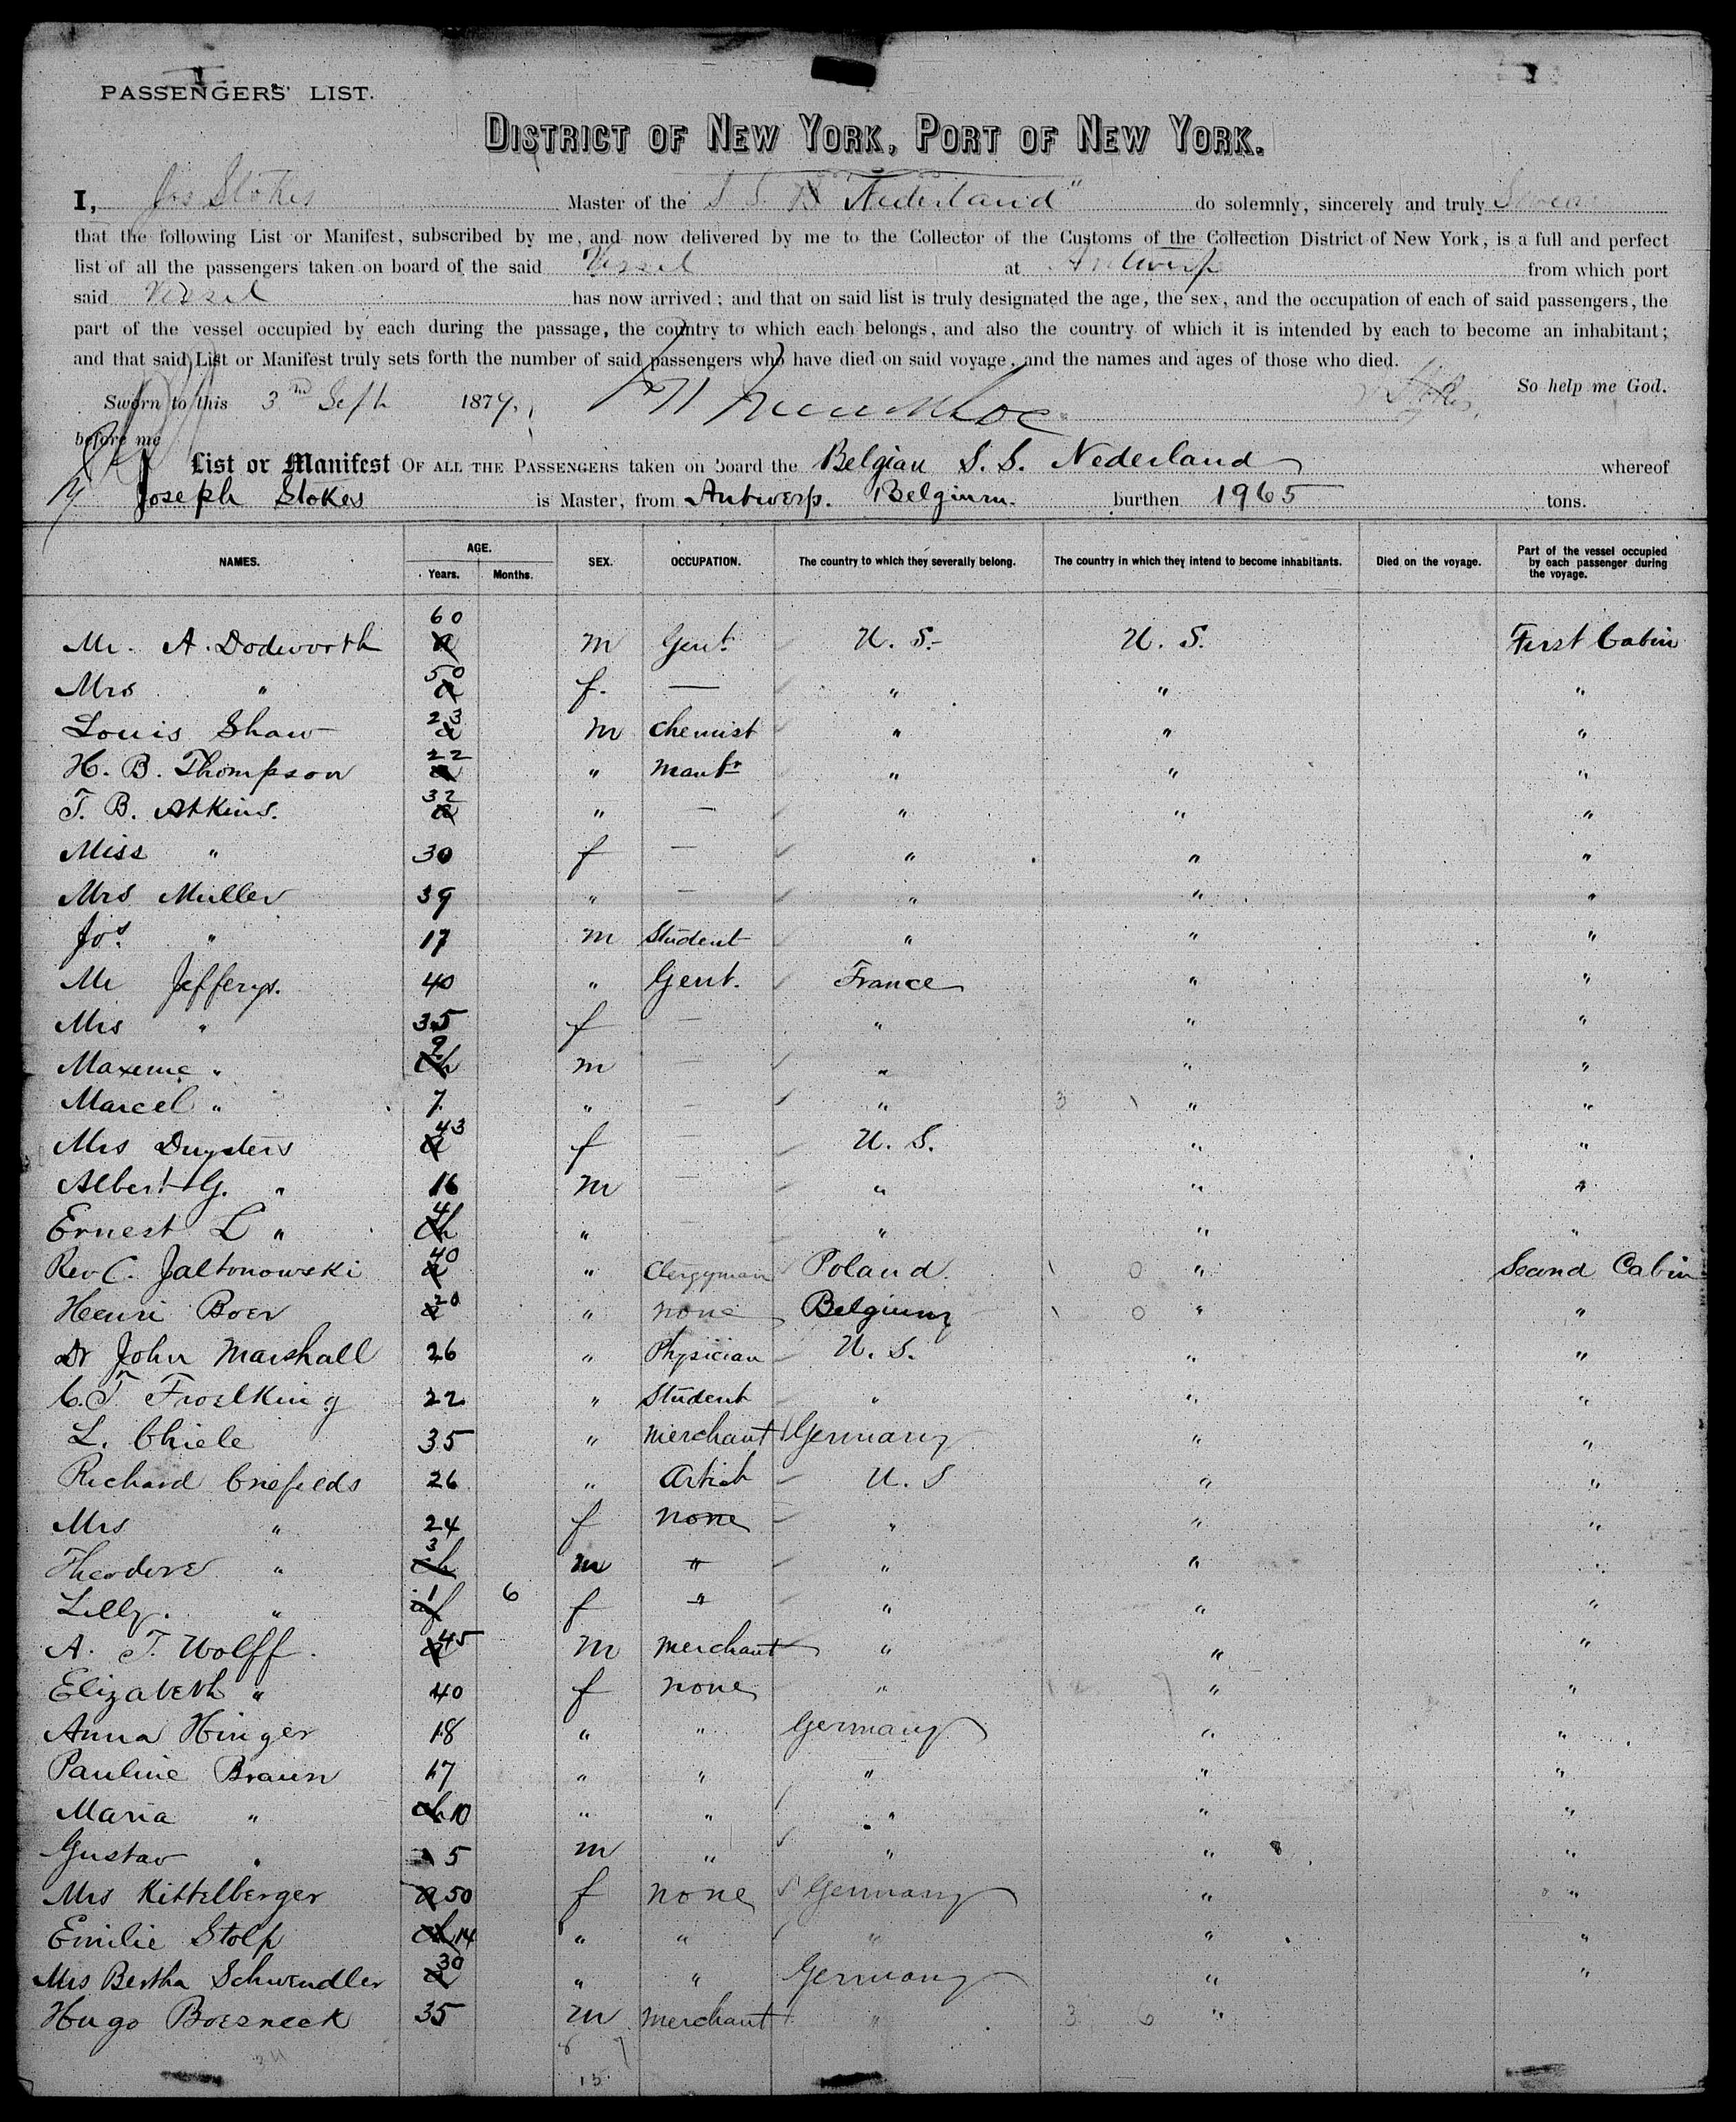 PASSENGERS' LIST.
DISTRICT OF NEW YORK, PORT OF NEW YORK.
I, Jos Stokes Master of the S. S. "Nederland" do solemnly, sincerely and truly Swear
that the following List or Manifest, subscribed by me, and now delivered by me to the Collector of the Customs of the Collection District of New York, is a full and perfect
list of all the passengers taken on board of the said Vessel at Antwerp from which port
said Vessel has now arrived; and that on said list is truly designated the age, the sex, and the occupation of each of said passengers, the
part of the vessel occupied by each during the passage, the country to which each belongs, and also the country of which it is intended by each to become an inhabitant;
and that said List or Manifest truly sets forth the number of said passengers who have died on said voyage, and the names and ages of those who died.
So help me God.
Sworn to this 3rd Sept 1879. Stokes
before me
List or Manifest OF ALL THE PASSENGERS taken on board the Belgian S. S. Nederland whereof
Joseph Stokes is Master, from Antwerp. Belgium. burthen 1965 tons.
NAMES. AGE. Years. Months. SEX. OCCUPATION. The country to which they severally belong. The country in which they intend to become inhabitants. Died on the voyage. Part of the vessel occupied by each passenger during the voyage.
Mr. A. Dodworth 60 m Gent. U. S. U. S. First Cabin
Mrs " 50 f. — " " "
Louis Shaw 23 m Chemist " " "
H. B. Thompson 22 " " " "
T. B. Atkins. 32 " — " " "
Miss " 30 f — " " "
Mrs Muller 39 " — " " "
Jos. " 17 m Student " " "
Mr Jefferys. 40 " Gent. France " "
Mrs " 35 f — " " "
Maxeme " 9 m — " " "
Marcel " 7 " — " " "
Mrs Duysters 43 f — U. S. " "
Albert G. " 16 m — " " "
Ernest L " 4 " — " " "
Rev C. Jaltonowski 40 " Clergyman Poland. " Second Cabin
Henri Boer 20 " none Belgium " "
Dr John Marshall 26 " Physician U. S. " "
C. T. Froelking 22 " Student " " "
L. Chiele 35 " merchant Germany " "
Richard Criefelds 26 " Artist U. S " "
Mrs " 24 f none " " "
Theodore " 3 m " " " "
Lilly. " 1 6 f " " " "
A. T. Wolff. 45 m merchant " " "
Elizabeth " 40 f none " " "
Anna Hinger 18 " " Germany " "
Pauline Braun 17 " " " " "
Maria " 10 " " " " "
Gustav " 5 m " " " "
Mrs Kittelberger 50 f none Germany " "
Emilie Stolp 14 " " " " "
Mrs Bertha Schwendler 30 " " Germany " "
Hugo Boesneck 35 m merchant " "